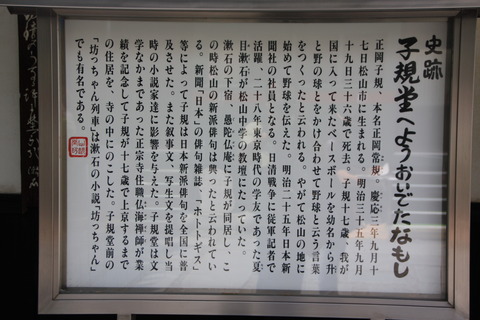 史跡
子規堂へようおいでたなもし
正岡子規、本名正岡常規。慶応三年九月十
七日松山市に生まれる。明治三十五年九月
十九日三十六歳で死去。子規十七歳、我が
国に入って来たベースボールを幼名から升
と野の球とをかけ合わせて野球と云う言葉
をつくったと云われる。やがて松山の地に
始めて野球を伝えた。明治二十五年日本新
聞社の社員となる。日清戦争に従軍記者で
活躍、二十八年東京時代の学友であった夏
目漱石が松山中学の教壇にたっていた。
漱石の下宿 愚陀仏庵に子規が同居し、こ
の時松山の新派俳句は興ったと云われてい
る。新聞「日本」の俳句雑誌、「ホトトギス」
等によって子規は日本新派俳句を全国に普
及させた。また叙事文、写生文を提唱し当
時の小説家達に影響を与えた。子規堂は文
学なかまであった正宗寺住職仏海禅師が業
績を記念して子規が十七歳で上京するまで
の住居を、寺の中にのこした。子規堂前の
「坊っちゃん列車」は漱石の小説「坊っちゃん」
でも有名である。